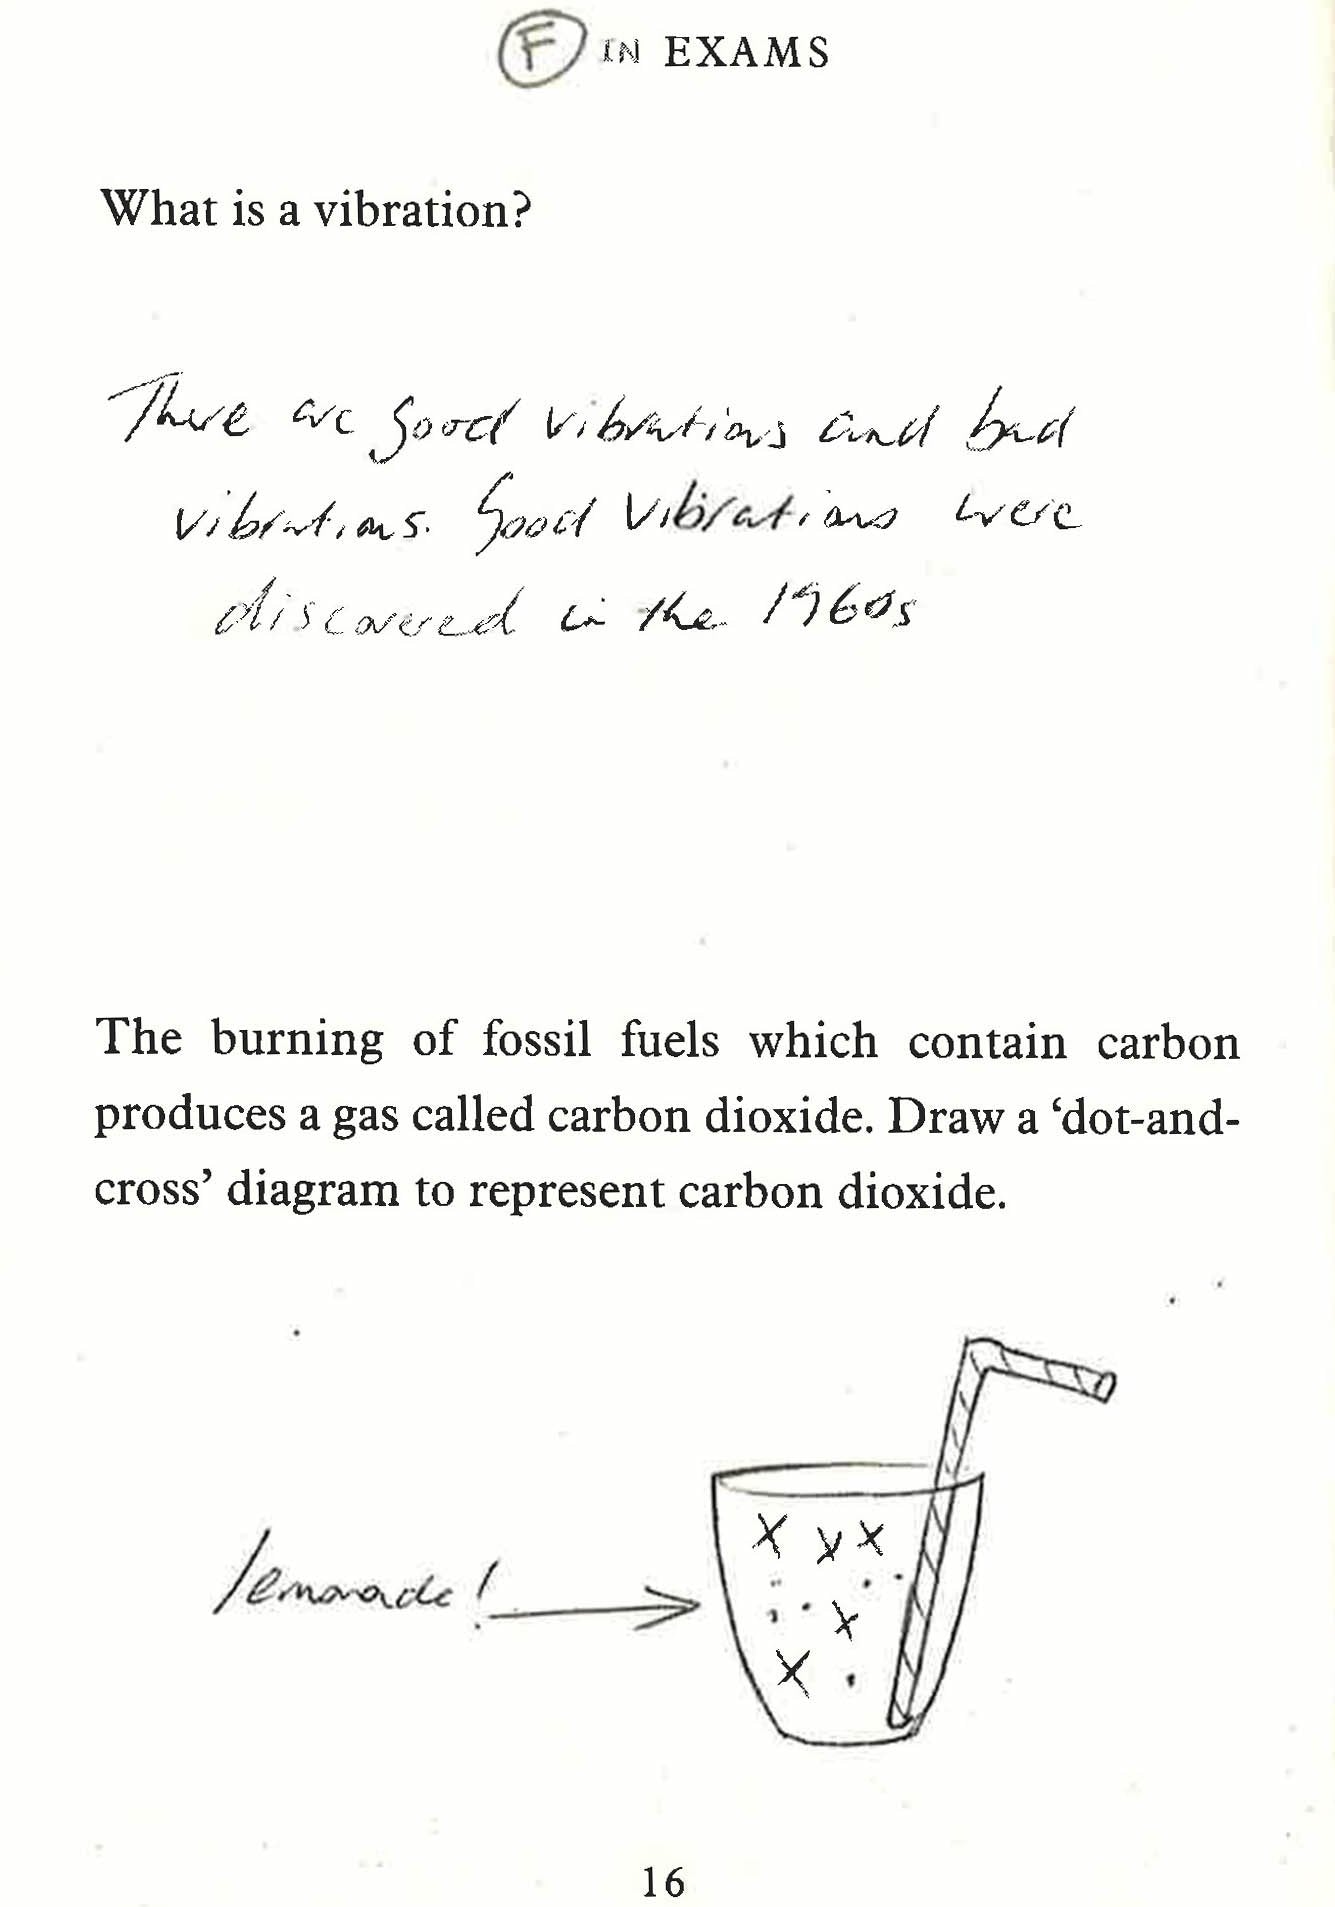 F IN EXAMS
What is a vibration?
There are good vibrations and bad
vibrations. Good vibrations were
discovered in the 1960s
The burning of fossil fuels which contain carbon
produces a gas called carbon dioxide. Draw a ‘dot-and-
cross’ diagram to represent carbon dioxide.
lemonade!
16